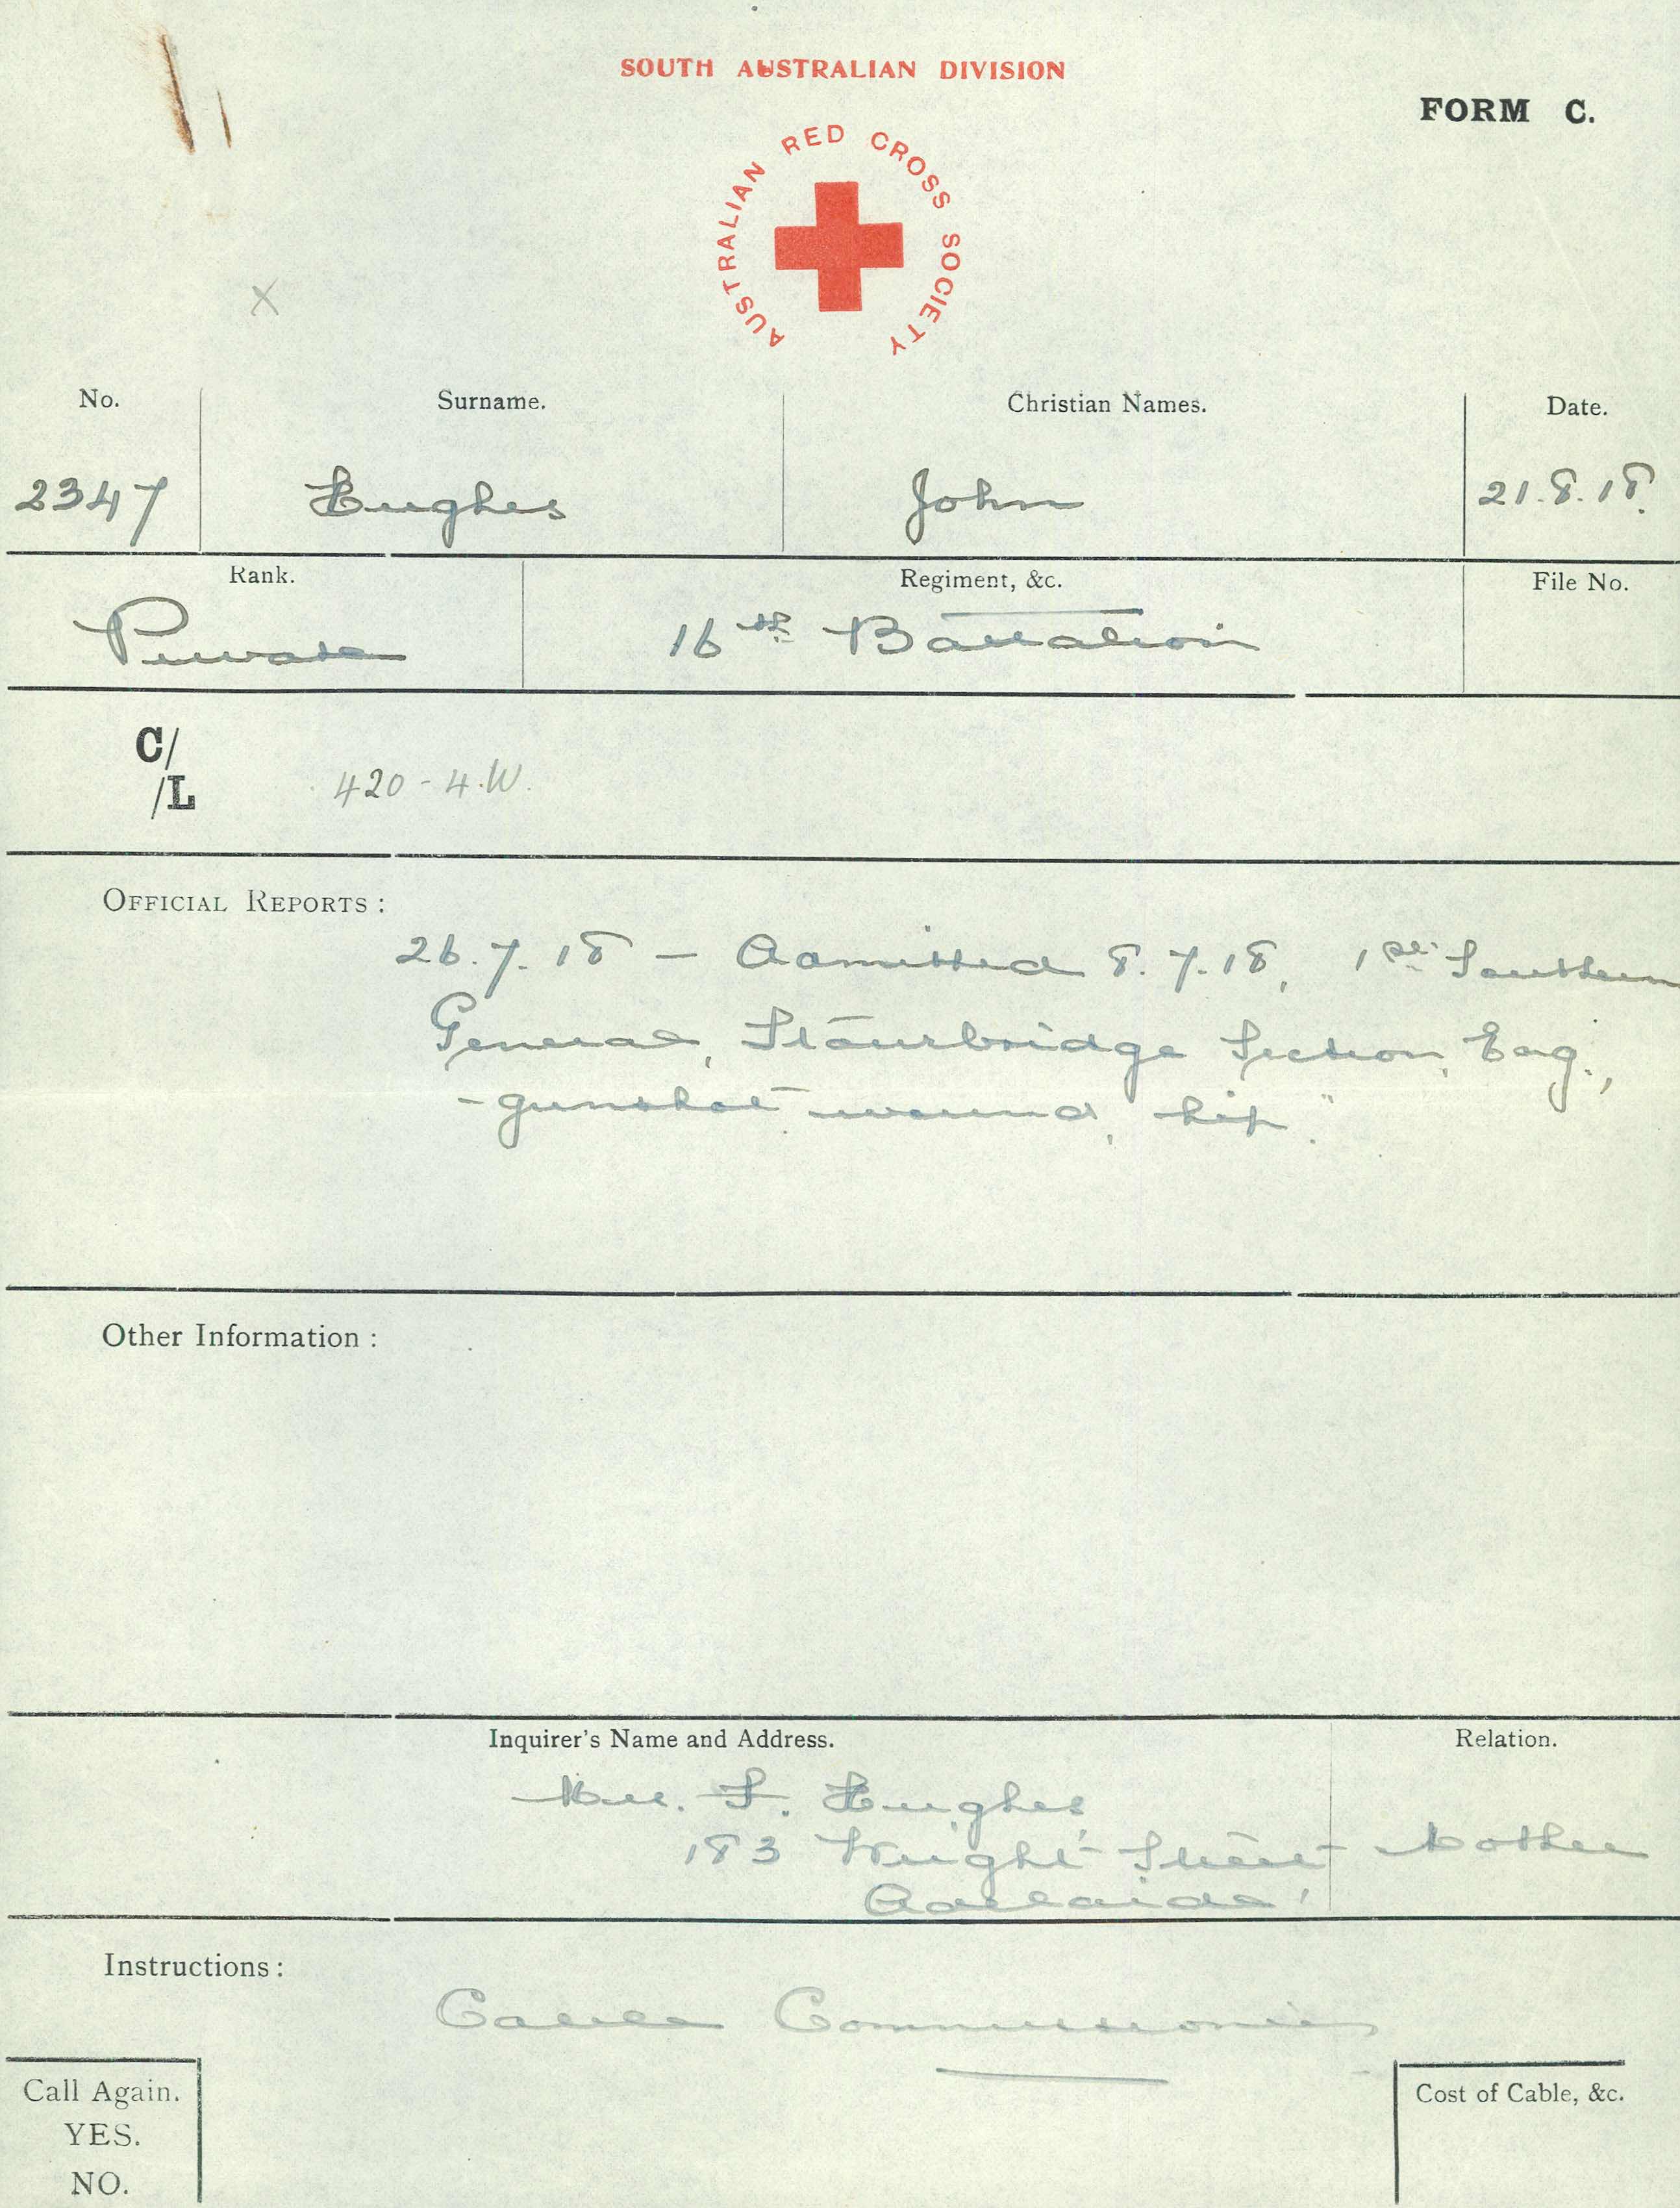 SOUTH AUSTRALIAN DIVISION
FORM C.
AUSTRALIAN RED CROSS SOCIETY
X
No. Surname. Christian Names. Date.
2347 Hughes John 21.8.18.
Rank. Regiment, &c. File No.
Private 16th Battalion
C/
/L 420-4.W.
OFFICIAL REPORTS:
26.7.18 — Admitted 8.7.18, 1st Southern
General, Stourbridge Section, Eng.,
"gunshot wound, hip."
Other Information:
Inquirer's Name and Address. Relation.
Mrs. F. Hughes,
183 Wright Street Mother
Adelaide
Instructions:
Cable Commissioner
Call Again. Cost of Cable, &c.
YES.
NO.